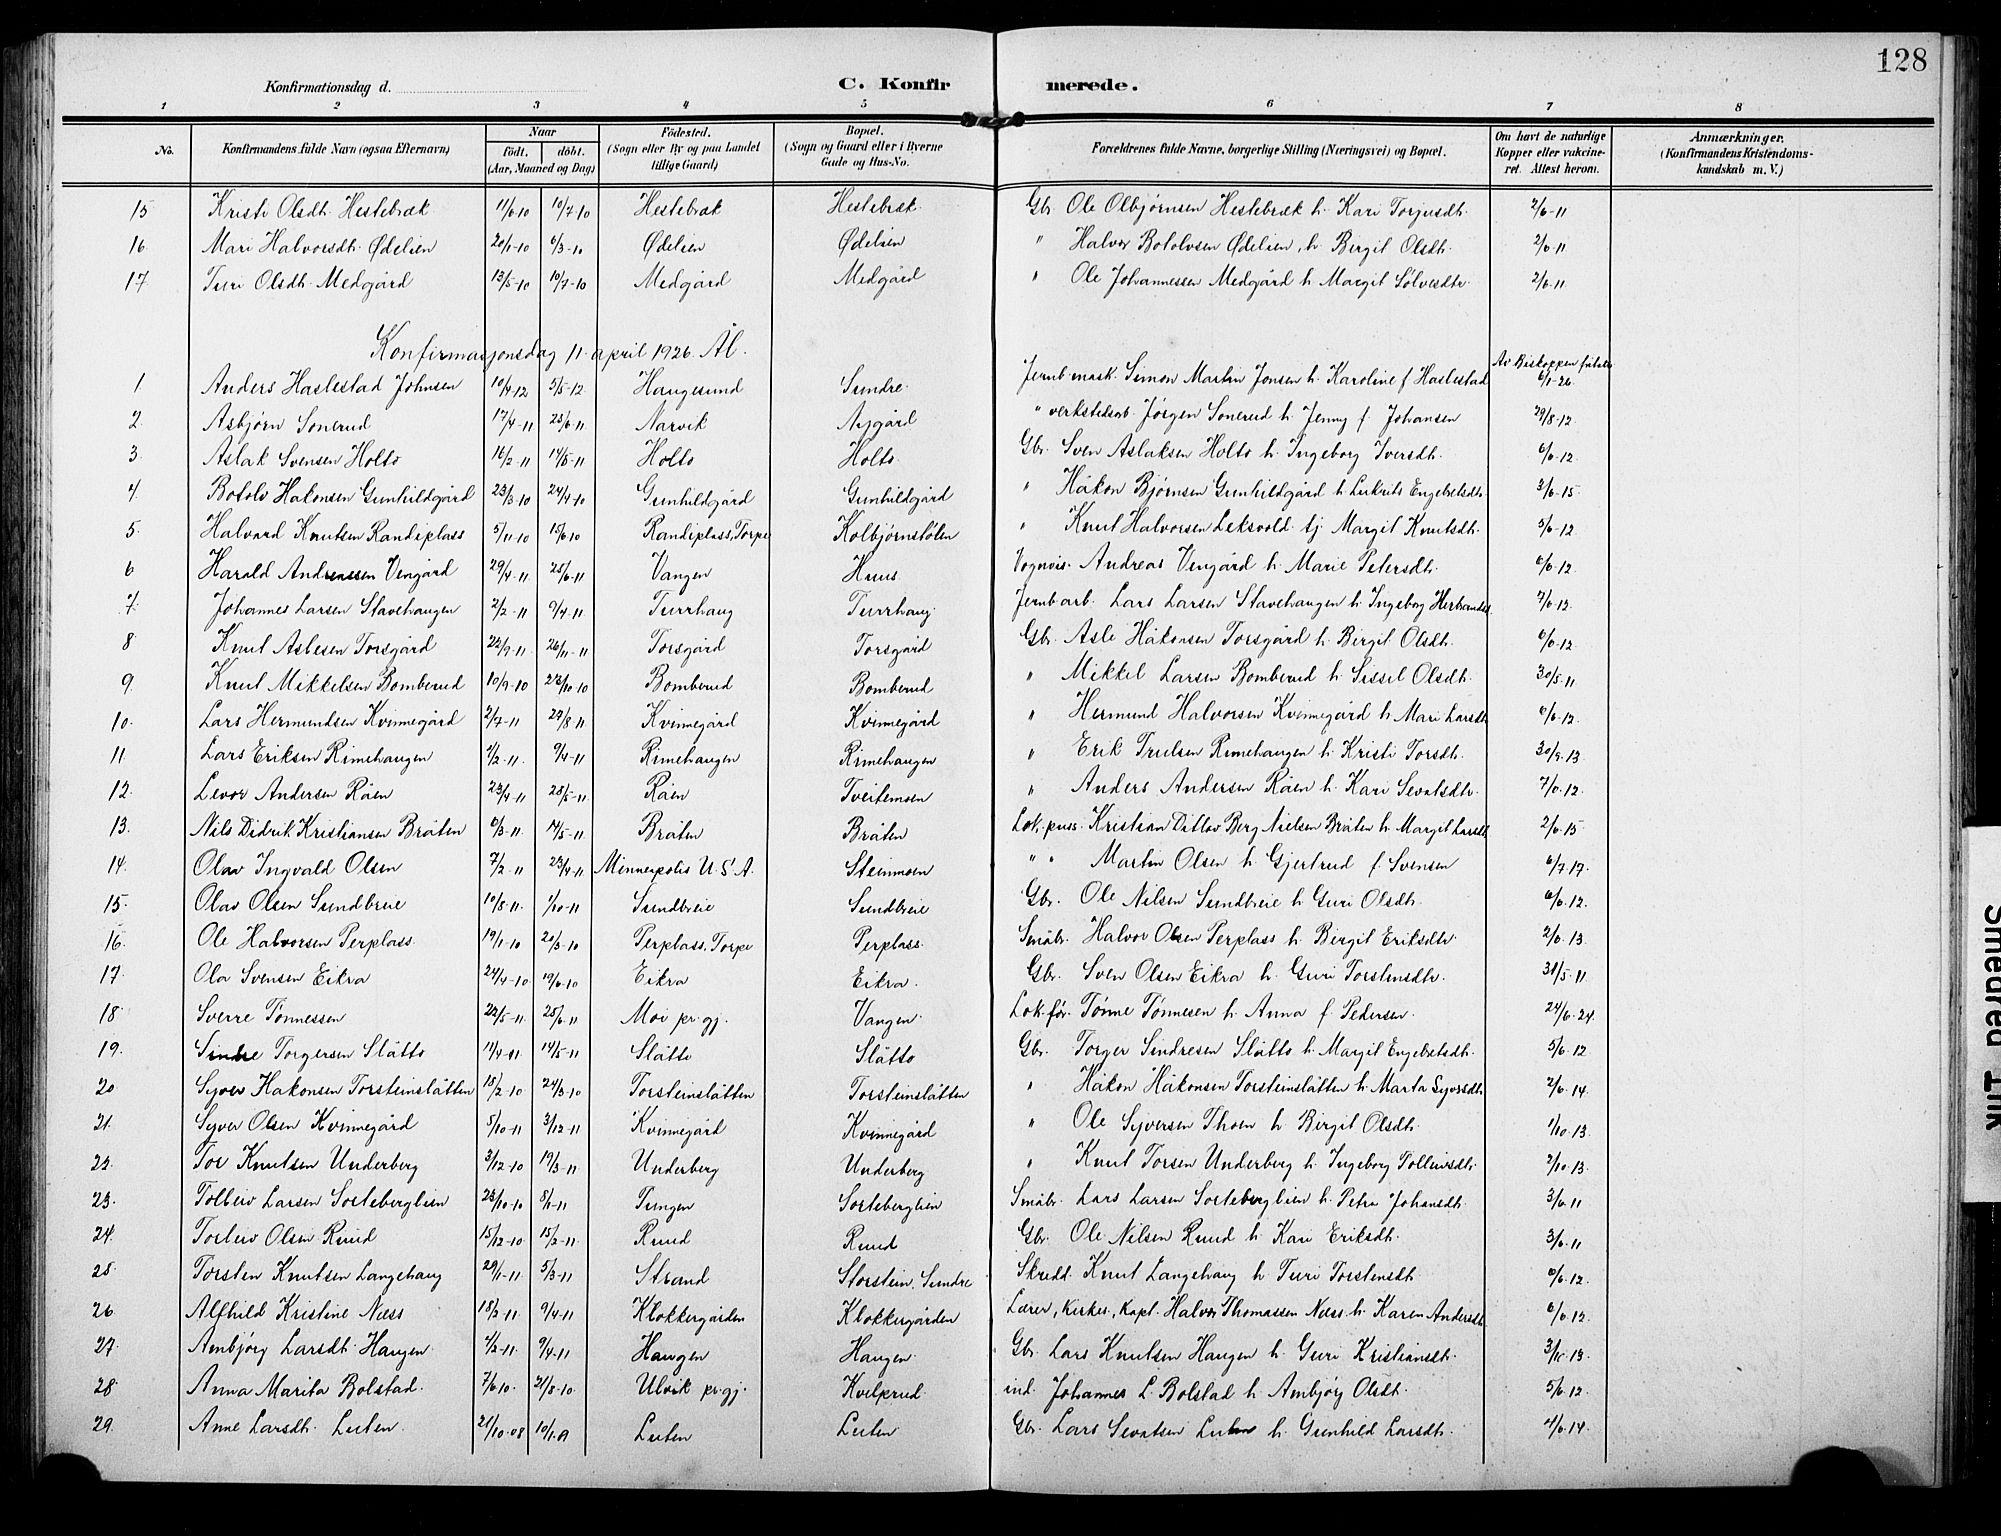 128
Konfirmationsdag d. C. Konfirmerede.
1 2 3 4 5 6 7 8
No. Konfirmandens fulde Navn (ogsaa Efternavn) Naar født. døbt. (Aar, Maaned og Dag) Fødested. (Sogn eller By og paa Landet tillige Gaard) Bopæl. (Sogn og Gaard eller i Byerne Gade og Hus-No. Forældrenes fulde Navne, borgerlige Stilling (Næringsvei) og Bopæl. Om havt de naturlige Kopper eller vakcineret. Attest herom. Anmærkninger. (Konfirmandens Kristendomskundskab m. V.)
15 Kristi Olsdt. Hestebræk 11/6-10 10/7-10 Hestebræk Hestebræk Gbr. Ole Olbjørnsen Hestebræk h. Kari Torjusdt. 2/6-11
16 Mari Halvorsdt. Ødelien 20/1-10 6/3-10 Ødelien Ødelien " Halvor Botolvsen Ødelien h. Birgit Olsdt. 2/6-11
17 Turi Olsdt. Medgård 13/5-10 10/7-10 Medgård Medgård " Ole Johannessen Medgård h. Margit Sølvesdtr. 2/6-11
Konfirmasjonsdag 11. april 1926. Ål.
Av Biskoppen
1. Anders Haslestad Johnsen 10/4-12 5/5-12 Haugesund Sundre Jernb.mask. Simon Martin Jonsen h. Karoline f. Haslestad 6/1-26
2. Asbjørn Sonerud 17/4-11 25/6-11 Narvik Nygård " verkstedsarb. Jørgen Sonerud h. Jenny f. Johansen 29/8-12
3. Aslak Svensen Holto 16/2-11 14/5-11 Holto Holto Gbr. Sven Aslaksen Holto h. Ingeborg Iversdt. 6/6-12
4. Botolv Håkonsen Gunhildgård 23/3-10 24/4-10 Gunhildgård Gunhildgård " Håkon Bjørnsen Gunhildgård h. Lukrits Engebretsdt. 3/6-15
5. Halvard Knutsen Randiplass 5/11-10 15/6-10 Randiplass, Torpe Kolbjørnstølen " Knut Halvorsen Leksvold tj. Margit Knutsdt. 5/6-12
6 Harald Andreassen Vengård 29/4-11 25/6-11 Vangen Huus Vognvis. Andreas Vengård h. Marie Petersdt. 6/6-12
7. Johannes Larsen Stavehaugen 2/2-11 9/4-11 Turrhaug Turrhaug Jernb.arb. Lars Larsen Stavehaugen h. Ingeborg Herbrandsd. 7/6-12
8 Knut Aslesen Torsgård 22/9-11 26/11-11 Torsgård Torsgård Gbr. Asle Håkonsen Torsgård h. Birgit Olsdt. 6/6-12
9. Knut Mikkelsen Bomberud 10/9-10 23/10-10 Bomberud Bomberud " Mikkel Larsen Bomberud h. Sissel Olsdt. 30/5-11
10. Lars Hermundsen Kvinnegård 2/7-11 27/8-11 Kvinnegård Kvinnegård " Hermund Halvorsen Kvinnegård h. Mari Larsdt. 6/6-12
11. Lars Eriksen Rimehaugen 1/2-11 9/4-11 Rimehaugen Rimehaugen " Erik Trulsen Rimehaugen h. Kristi Torsdt. 30/9-13
12. Levor Andersen Råen 23/4-11 25/5-11 Råen Tveitemoen " Anders Andersen Råen h. Kari Sevatsdtr. 7/6-12
13. Nils Didrik Kristiansen Bråten 6/3-11 14/5-11 Bråten Bråten Lok.puss. Kristian Ditlov Berg Nielsen Bråten h. Margit Larsdt. 2/6-15
14. Olav Ingvald Olsen 7/2-11 23/4-11 Minneapolis U.S.A. Steinmoen " " Martin Olsen h. Gjertrud f. Svensen 6/7-17
15. Olav Olsen Sundbreie 10/8-11 1/10-11 Sundbreie Sundbreie Gbr. Ole Nilsen Sundbreie h. Guri Olsdt. 6/6-12
16. Ole Halvorsen Perplass 19/1-10 20/3-10 Perplass, Torpe Perplass Småbr. Halvor Olsen Perplass h. Birgit Eriksdtr. 2/6-13
17. Ola Svensen Eikra 24/4-10 19/6-10 Eikra Eikra Gbr. Sven Olsen Eikra h. Guri Torstensdtr. 31/5-11
18. Sverre Tønnessen 22/5-11 25/6-11 Moi pr.gj. Vangen Lok.før. Tønne Tønnesen h. Anna f. Pedersen 24/6-24
19. Sindre Torgersen Slåtto 11/4-11 14/5-11 Slåtto Slåtto Gbr. Torger Sindresen Slåtto h. Margit Engebretsdt. 5/6-12
20 Syver Håkonsen Torsteinslåtten 15/2-10 24/3-10 Torsteinslåtten Torsteinslåtten " Håkon Håkonsen Torsteinslåtten h. Marta Syversdt. 2/6-14
21. Syver Olsen Kvinnegård 5/10-11 3/12-11 Kvinnegård Kvinnegård " Ole Syversen Thoen h. Birgit Olsdt. 1/10-13
22. Tor Knutsen Underberg 3/12-10 19/3-11 Underberg Underberg " Knut Torsen Underberg h. Ingeborg Tolleivsdt. 2/10-13
23. Tolleiv Larsen Sorteberglien 23/10-10 8/1-11 Tungen Sorteberglien Småbr. Lars Larsen Sorteberglien h. Petra Johansdt. 3/6-11
24. Torleiv Olsen Ruud 15/12-10 15/2-11 Ruud Ruud Gbr. Ole Nilsen Ruud h. Kari Eriksdt. 3/6-11
25. Torsten Knutsen Langehaug 29/1-11 5/3-11 Strand Storstein, Sundre Skredd. Knut Langehaug h. Turi Torstensdt. 6/6-12
26 Alfhild Kristine Næss 18/2-11 9/4-11 Klokkergården Klokkergården Lærer, Kirkes., Kapt. Halvor Thomassen Næss h. Karen Andersdt. 6/6-12
27 Ambjørg Larsdt. Haugen 4/2-11 9/4-11 Haugen Haugen Gbr. Lars Knutsen Haugen h. Guri Kristiansdt. 3/10-13
28 Anna Marita Bolstad 7/6-10 21/8-10 Ulvik pr.gj. Kvelprud ind. Johannes L. Bolstad h. Ambjørg Olsdt. 5/6-12
29. Anne Larsdt. Luten 21/10-08 10/1-09 Luten Luten Gbr. Lars Sevatsen Luten h. Gunhild Larsdt. 4/6-14
Smedred Ink